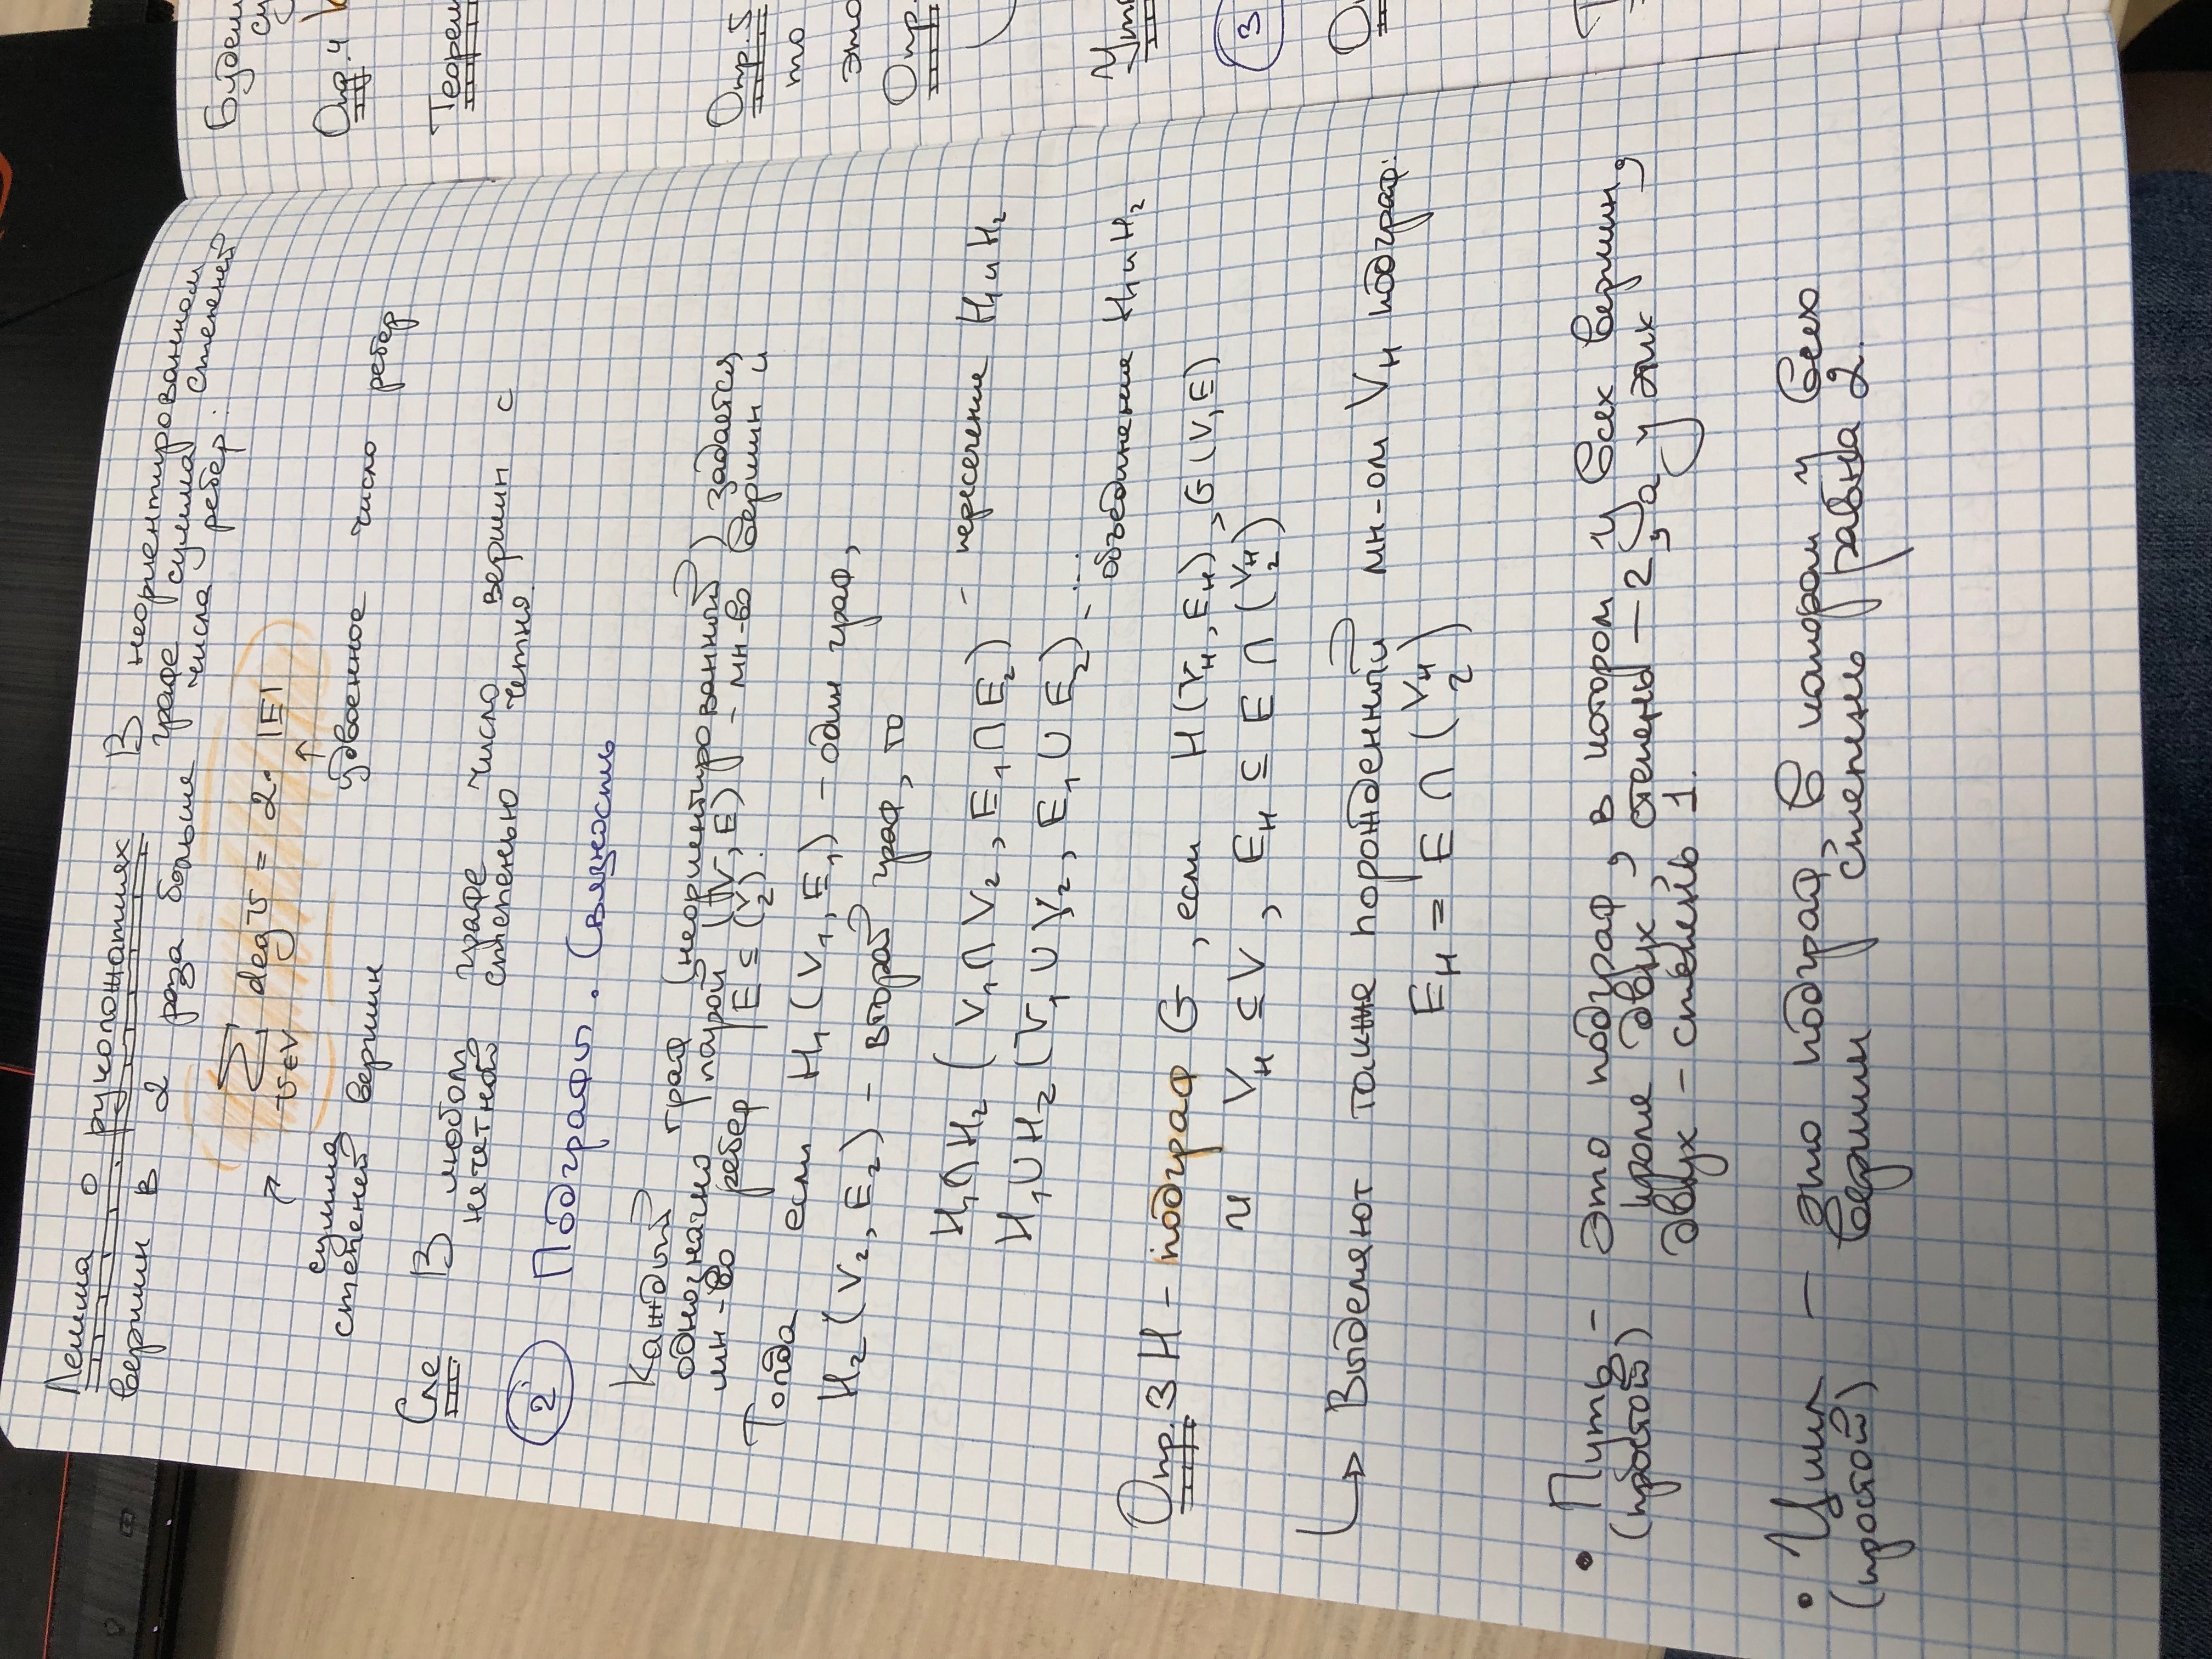 Лемма о рукопожатиях В неориентированном
графе сумма степеней
вершин в 2 раза больше числа ребер:
∑ deg v = 2· |E|
v∈V
↗ ↑
сумма
степеней вершин
удвоенное число ребер
Сле В любом графе число вершин с
нечетной степенью четно.
2 Подграфы. Связность
Каждый граф (неориентированный) задается
однозначно парой (V, E) – мн-во вершин и
мн-во ребер E ⊆ (V 2).
Тогда если H₁ (V₁, E₁) – один граф,
H₂ (V₂, E₂) – второй граф, то
H₁∩H₂ (V₁∩V₂, E₁∩E₂) – пересечение H₁ и H₂
H₁∪H₂ (V₁∪V₂, E₁∪E₂) – ...
объединение H₁ и H₂
Опр.3 H – подграф G, если H(V_H, E_H), G(V, E)
и V_H ⊆ V, E_H ⊆ E ∩ (V_H 2)
↳ Выделяют также порожденный мн-ом V_H подграф:
E_H = E ∩ (V_H 2)
• Путь – это подграф, в котором у всех вершин,
(простой) кроме двух, степень – 2, а у этих
двух – степень 1.
• Цикл – это подграф, в котором у всех
(простой) вершин степень равна 2.
Будем
Опр.4
Теорем
Опр.5
то
это
Опр.
3